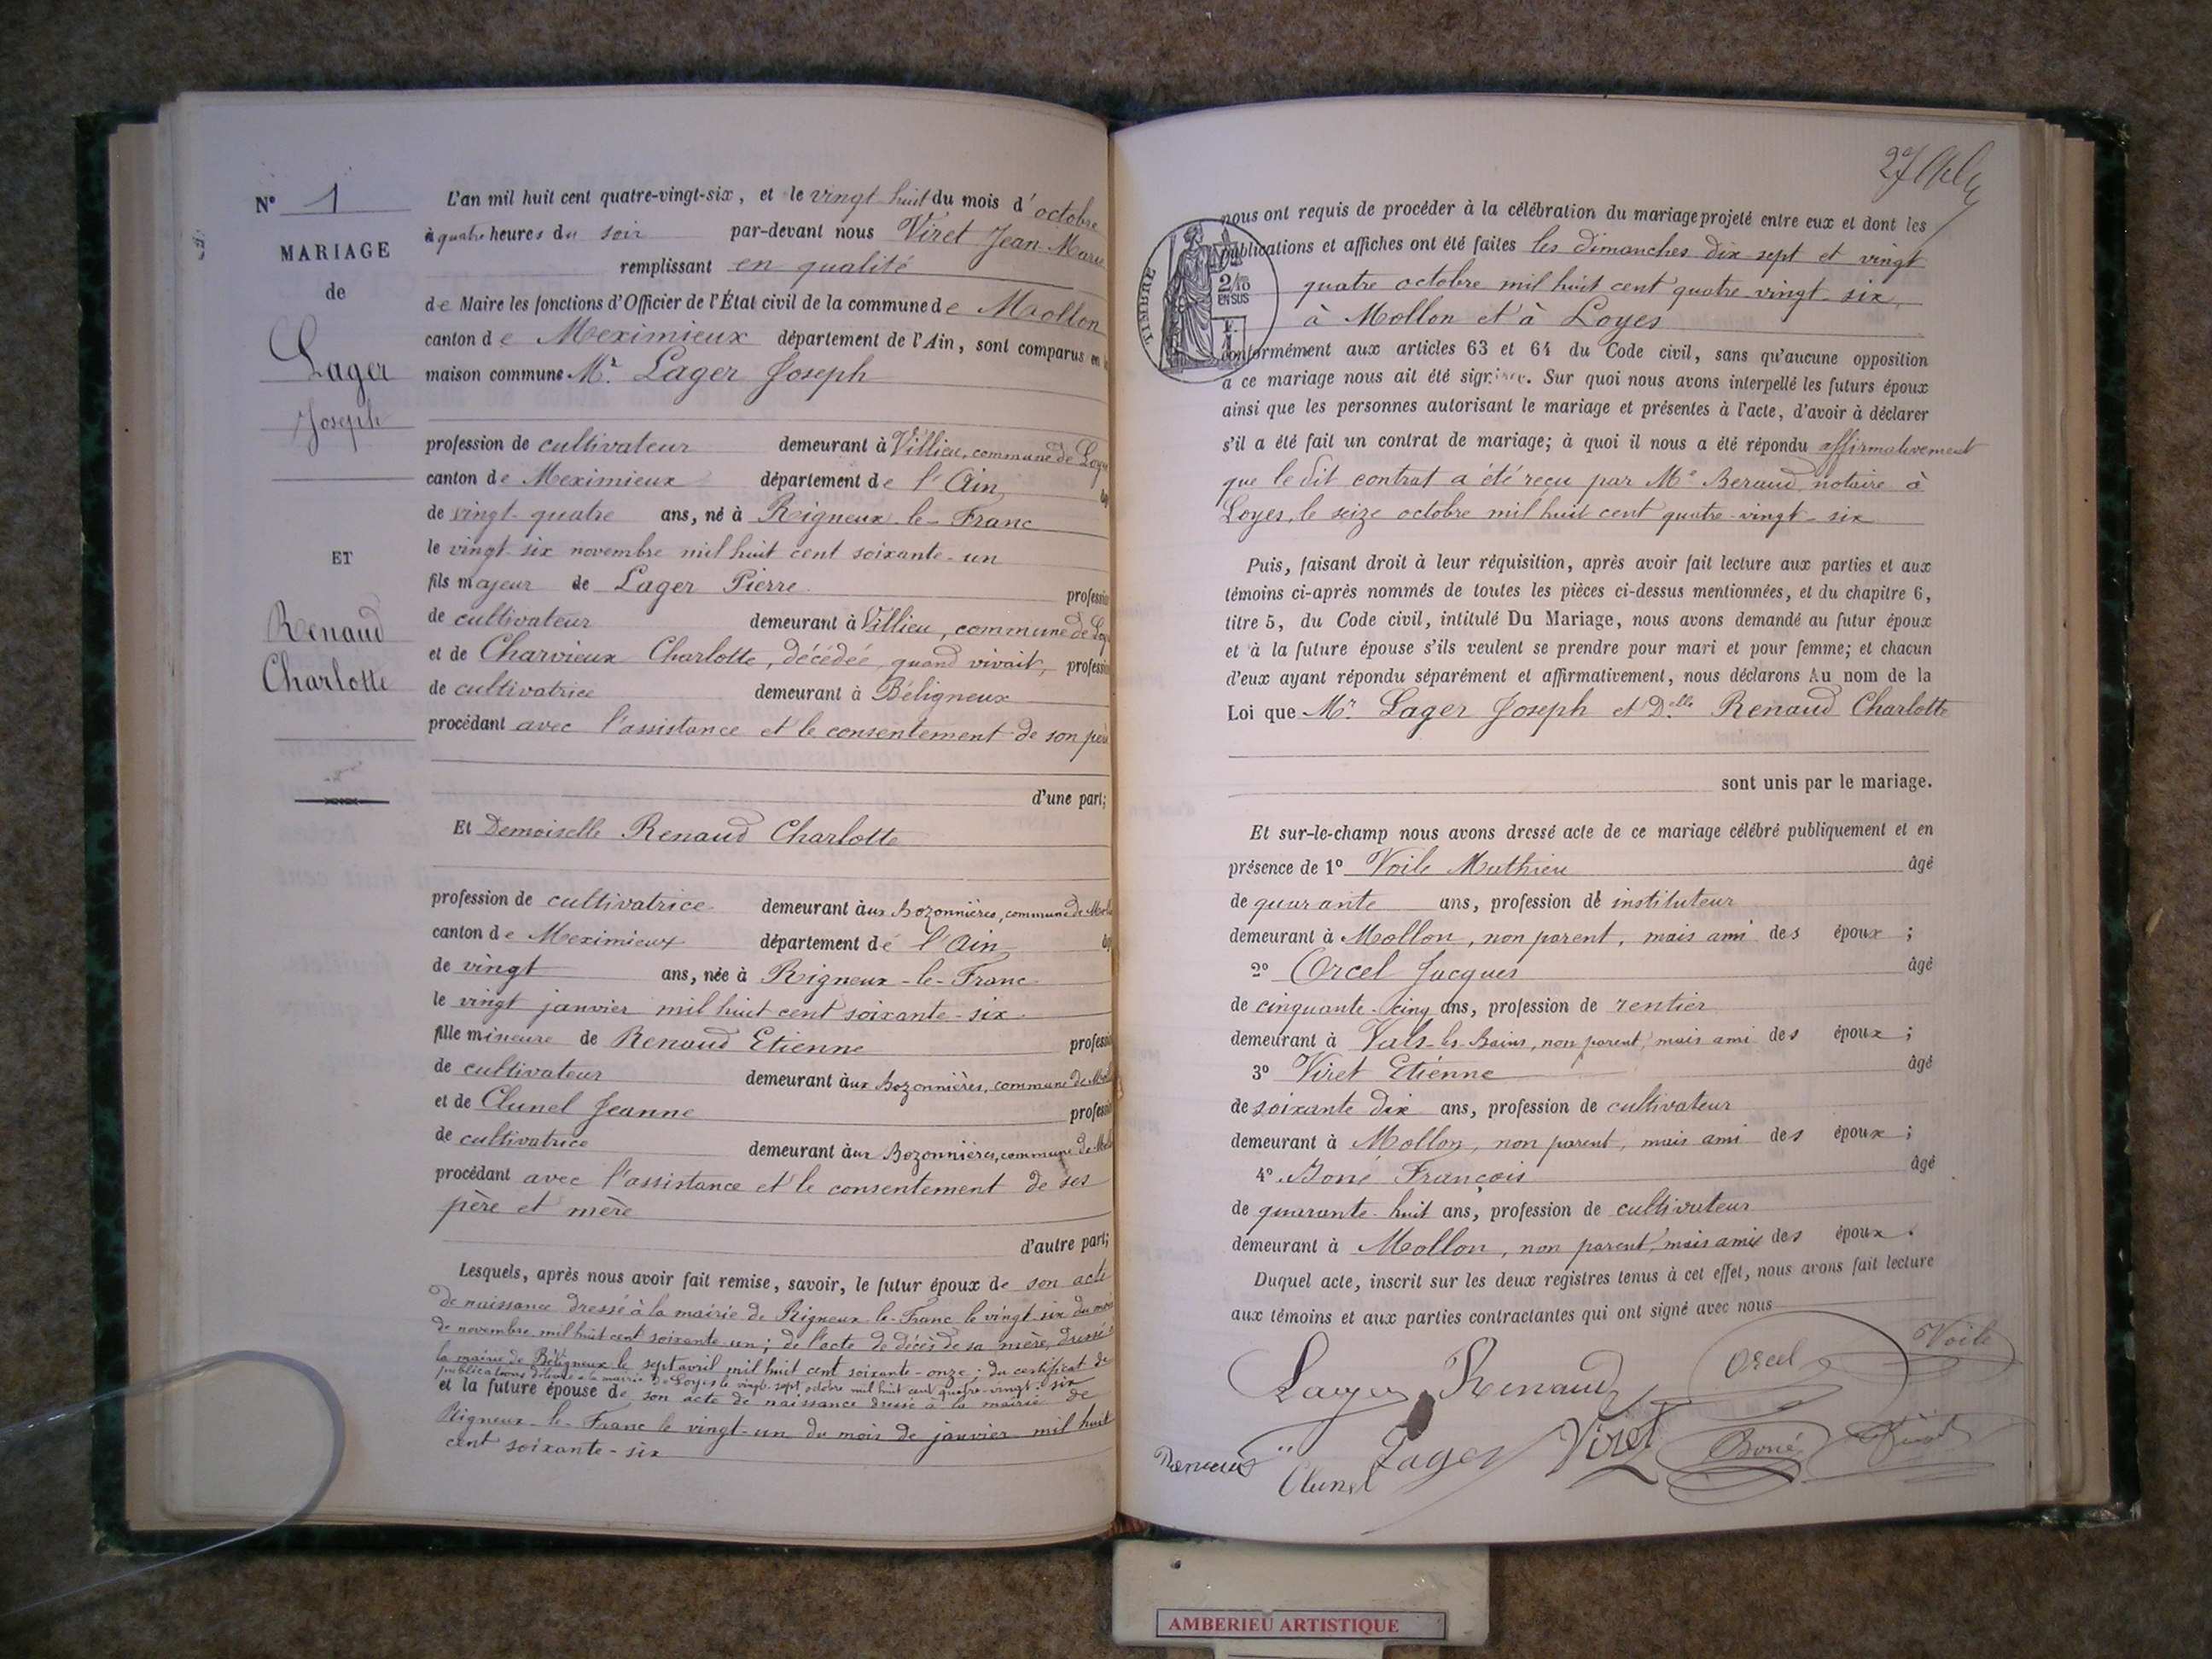 N° 1
MARIAGE
de
Lager
Joseph
ET
Renaud
Charlotte
L'an mil huit cent quatre-vingt-six, et le vingt huit du mois d'octobre
à quatre heures du soir par-devant nous Viret Jean-Marie
remplissant en qualité
de Maire les fonctions d'Officier de l'État civil de la commune de Mollon
canton de Meximieux département de l'Ain, sont comparus en la
maison commune Mr. Lager Joseph
profession de cultivateur demeurant à Villieu, commune de Loyes
canton de Meximieux département de l'Ain
de vingt-quatre ans, né à Rigneux-le-Franc
le vingt-six novembre mil huit cent soixante-un
fils majeur de Lager Pierre profession
de cultivateur demeurant à Villieu, commune de Loyes
et de Charvieux Charlotte, décédée, quand vivait, profession
de cultivatrice demeurant à Béligneux
procédant avec l'assistance et le consentement de son père
d'une part;
Et Demoiselle Renaud Charlotte
profession de cultivatrice demeurant aux Bozonnières, commune de Mollon
canton de Meximieux département de l'Ain
de vingt ans, née à Rigneux-le-Franc
le vingt janvier mil huit cent soixante-six
fille mineure de Renaud Etienne profession
de cultivateur demeurant aux Bozonnières, commune de Mollon
et de Clunel Jeanne profession
de cultivatrice demeurant aux Bozonnières, commune de Mollon
procédant avec l'assistance et le consentement de ses
père et mère
d'autre part;
Lesquels, après nous avoir fait remise, savoir, le futur époux de son acte
de naissance dressé à la mairie de Rigneux-le-Franc le vingt-six du mois
de novembre mil huit cent soixante-un; de l'acte de décès de sa mère, dressé à
la mairie de Béligneux le sept avril mil huit cent soixante-onze; du certificat de
publications délivré à la mairie de Loyes le vingt-sept octobre mil huit cent quatre-vingt-six
et la future épouse de son acte de naissance dressé à la mairie de
Rigneux-le-Franc le vingt-un du mois de janvier mil huit
cent soixante-six
TIMBRE
2/10
EN SUS
nous ont requis de procéder à la célébration du mariage projeté entre eux et dont les
publications et affiches ont été faites les dimanches dix sept et vingt
quatre octobre mil huit cent quatre-vingt-six,
à Mollon et à Loyes
conformément aux articles 63 et 64 du Code civil, sans qu'aucune opposition
à ce mariage nous ait été signifiée. Sur quoi nous avons interpellé les futurs époux
ainsi que les personnes autorisant le mariage et présentes à l'acte, d'avoir à déclarer
s'il a été fait un contrat de mariage; à quoi il nous a été répondu affirmativement
que le dit contrat a été reçu par Me Beraud, notaire à
Loyes, le seize octobre mil huit cent quatre-vingt-six
Puis, faisant droit à leur réquisition, après avoir fait lecture aux parties et aux
témoins ci-après nommés de toutes les pièces ci-dessus mentionnées, et du chapitre 6,
titre 5, du Code civil, intitulé Du Mariage, nous avons demandé au futur époux
et à la future épouse s'ils veulent se prendre pour mari et pour femme; et chacun
d'eux ayant répondu séparément et affirmativement, nous déclarons Au nom de la
Loi que Mr. Lager Joseph et Delle Renaud Charlotte
sont unis par le mariage.
Et sur-le-champ nous avons dressé acte de ce mariage célébré publiquement et en
présence de 1° Voile Mathieu âgé
de quarante ans, profession d'instituteur
demeurant à Mollon, non parent, mais ami des époux;
2° Orcel Jacques âgé
de cinquante-cinq ans, profession de rentier
demeurant à Vals-les-Bains, non parent, mais ami des époux;
3° Viret Etienne âgé
de soixante dix ans, profession de cultivateur
demeurant à Mollon, non parent, mais ami des époux;
4° Boné François âgé
de quarante-huit ans, profession de cultivateur
demeurant à Mollon, non parent, mais ami des époux.
Duquel acte, inscrit sur les deux registres tenus à cet effet, nous avons fait lecture
aux témoins et aux parties contractantes qui ont signé avec nous
Lager Renaud Orcel Voile
Renaud Clunel Lager Viret Boné Viret
AMBERIEU ARTISTIQUE